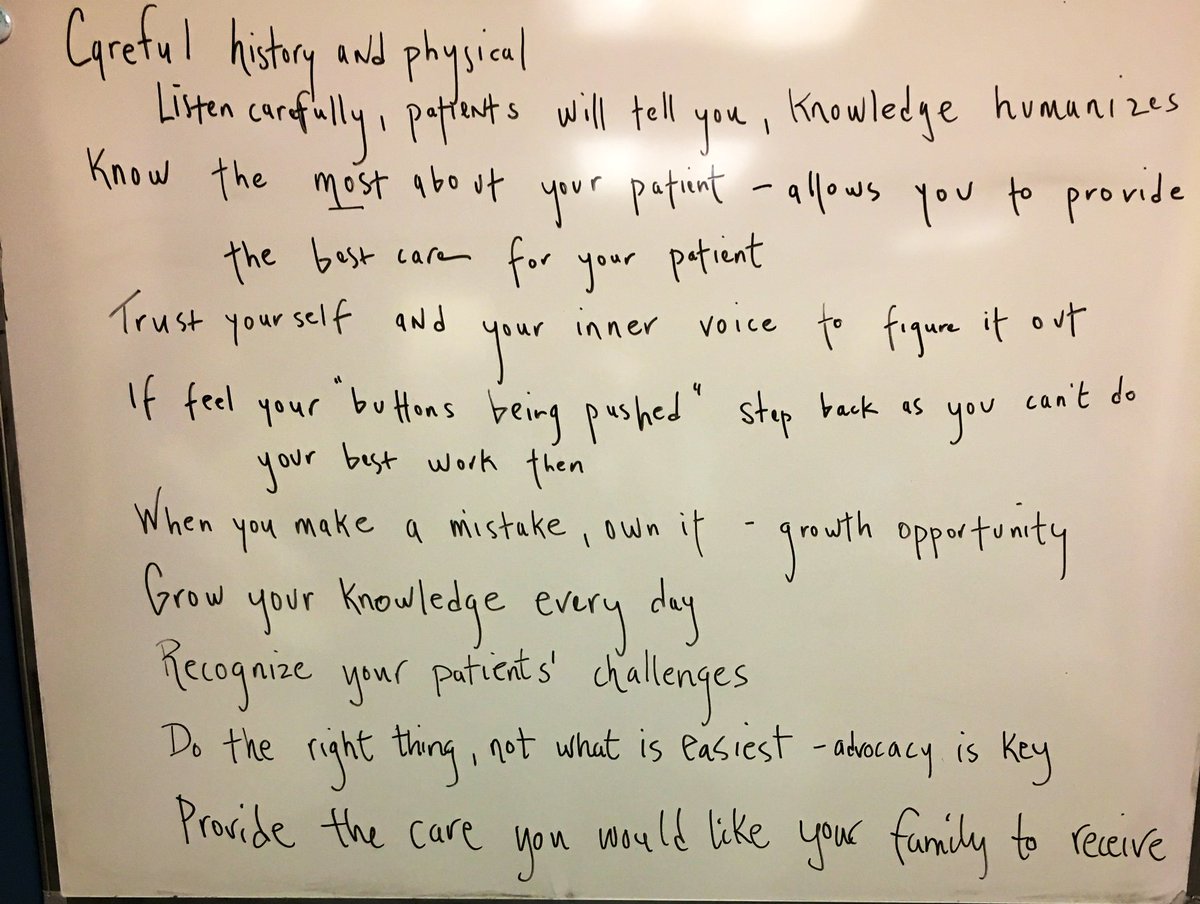 Careful history and physical
Listen carefully, patients will tell you, Knowledge humanizes
Know the most about your patient - allows you to provide
the best care for your patient
Trust yourself and your inner voice to figure it out
If feel your "buttons being pushed" step back as you can't do
your best work then
When you make a mistake, own it - growth opportunity
Grow your knowledge every day
Recognize your patients' challenges
Do the right thing, not what is easiest - advocacy is key
Provide the care you would like your family to receive